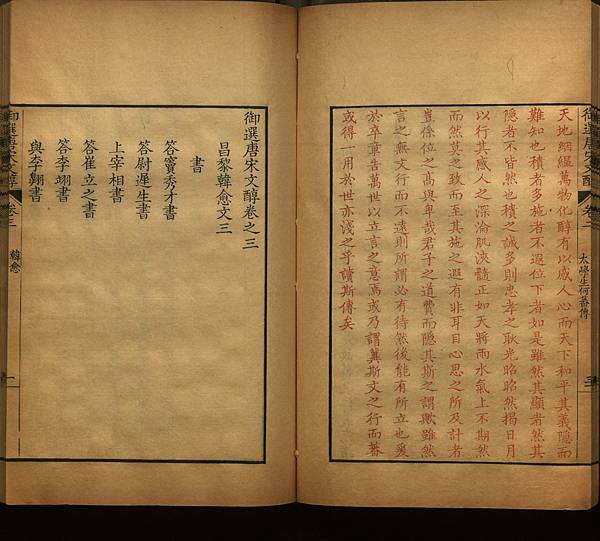 御選唐宋文醇 卷二
太學生何蕃傳
三
天地絪縕萬物化醇有以感人心而天下和平其義隱而
難知也積者多施者不遐位下者如是雖然其顯者然其
隱者不皆然也積之誠多則忠孝之耿光昭昭然揭日月
以行其感人之深淪肌浹髓正如天將雨水氣上不期然
而然莫之致而至其施之遐有非耳目心思之所及計者
豈係位之高與卑哉君子之道費而隱其斯之謂歟雖然
言之無文行而不遠則所謂必有待然後能有所立也爰
於卒章告萬世以立言之意焉或乃謂冀斯文之行而蕃
或得一用於世亦淺之乎讀斯傳矣
御選唐宋文醇卷之三
昌黎韓愈文三
書
答竇秀才書
答尉遲生書
上宰相書
答崔立之書
答李翊書
與李翱書
御選唐宋文醇 卷三
韓愈
一